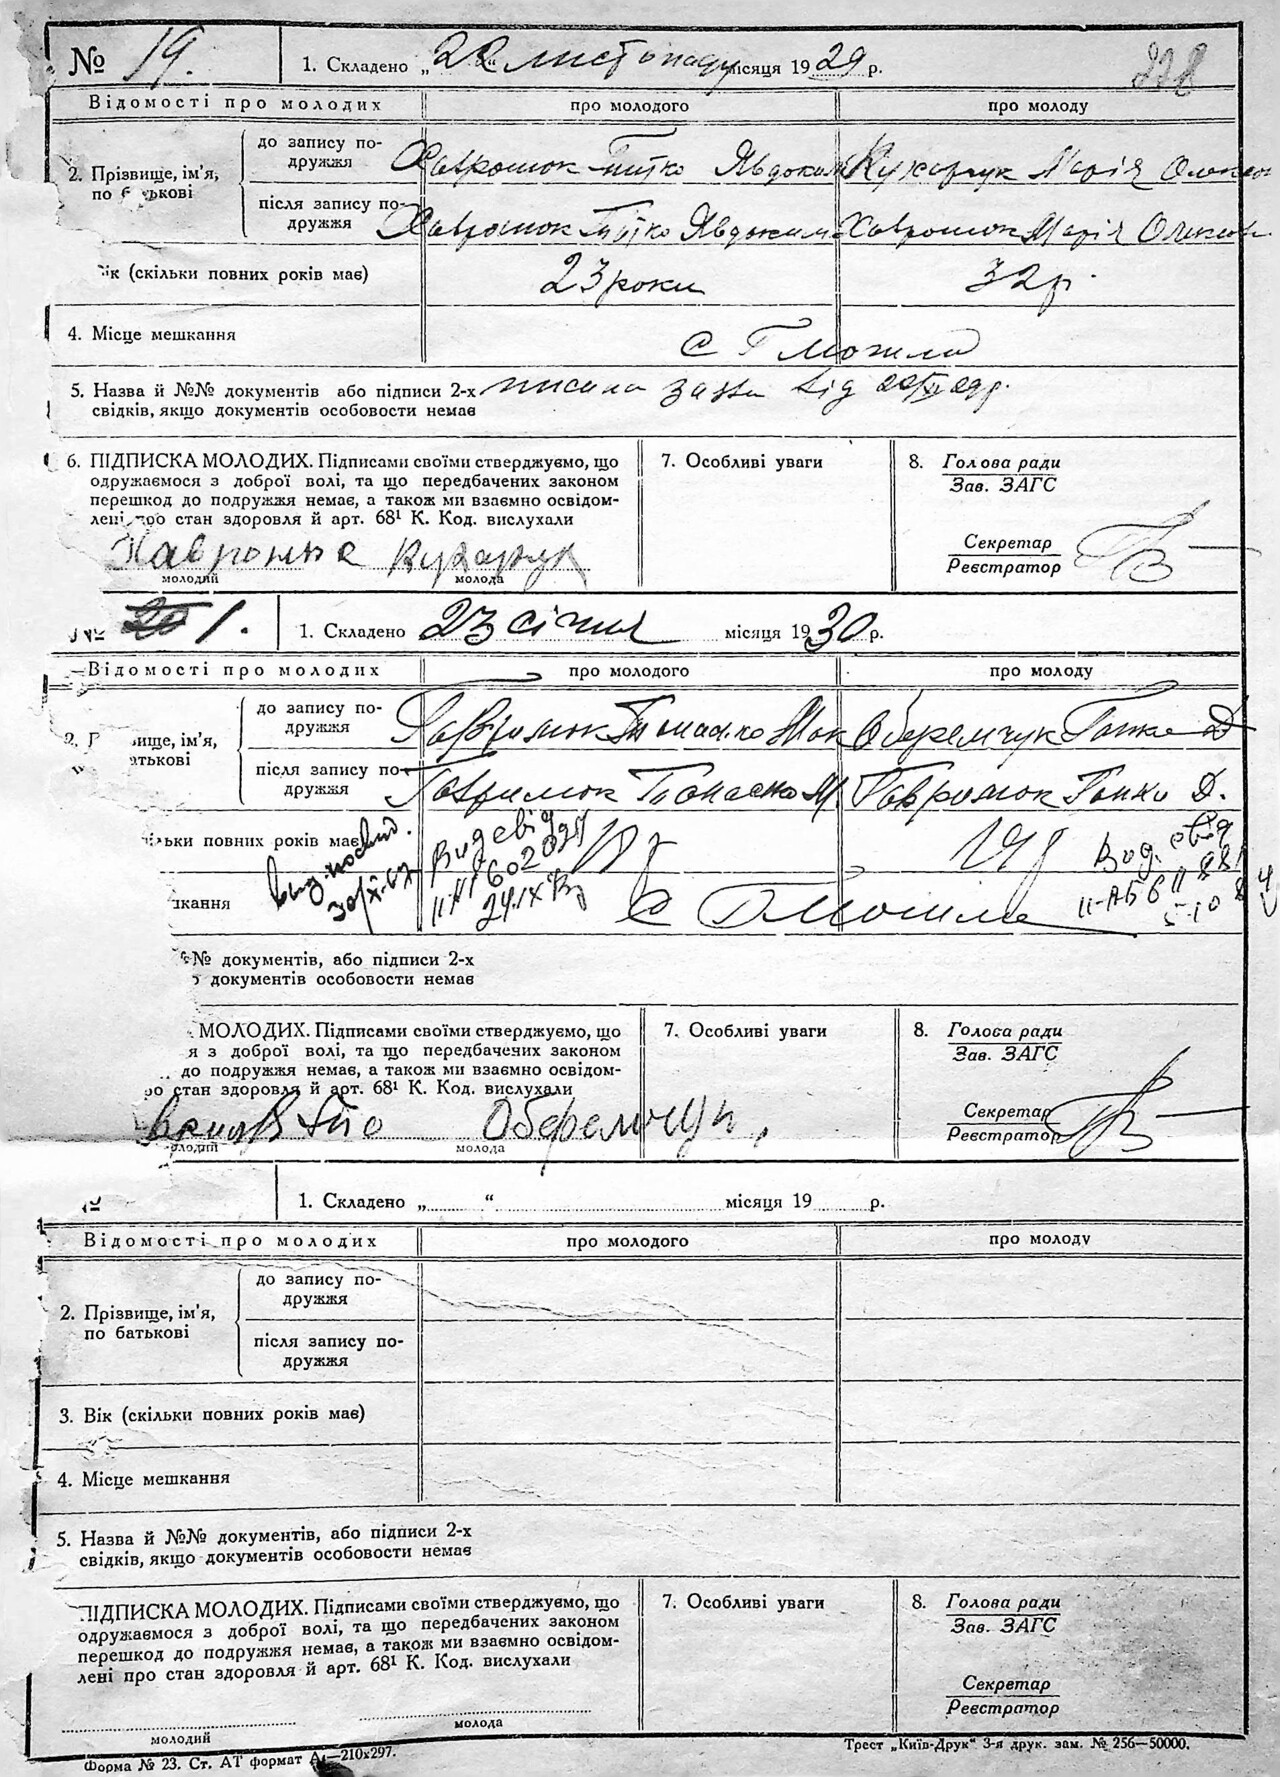 № 19. 1. Складено „22“ листопаду місяця 1929 р. 228
Відомості про молодих про молодого про молоду
2. Прізвище, ім'я, по батькові
до запису подружжя Хавронюк Титко Явдоким Кухарчук Марія Олексов
після запису подружжя Хавронюк Титко Явдоким Хавронюк Марія Олексов
ік (скільки повних років має) 23 роки 32 р.
4. Місце мешкання с Г Могила
5. Назва й №№ документів або підписи 2-х писана заява від 22/XI 29 р.
свідків, якщо документів особовости немає
6. ПІДПИСКА МОЛОДИХ. Підписами своїми стверджуємо, що 7. Особливі уваги 8. Голова ради
одружаємося з доброї волі, та що передбачених законом Зав. ЗАГС
перешкод до подружжя немає, а також ми взаємно освідом-
лені про стан здоровля й арт. 68¹ К. Код. вислухали Секретар
Хавронюк Кухарчук Реєстратор
молодий молода
№ 20 1. 1. Складено 23 січня місяця 1930 р.
Відомості про молодих про молодого про молоду
2. П вище, ім'я, атькові
до запису подружжя Гавримюк Мак Оберемчук Ганка Д
після запису подружжя Гавримюк Панаско М. Гавромюк Ганка Д.
ільки повних років має 19 р
30/X-67
II-АБ 6
24.IX
шкання с Г Могила
№№ документів, або підписи 2-х
о документів особовости немає
МОЛОДИХ. Підписами своїми стверджуємо, що 7. Особливі уваги 8. Голова ради
я з доброї волі, та що передбачених законом Зав. ЗАГС
до подружжя немає, а також ми взаємно освідом-
ро стан здоровля й арт. 68¹ К. Код. вислухали Секретар
Оберемчук Реєстратор
олодий молода
№ 1. Складено „ “ місяця 19 р.
Відомості про молодих про молодого про молоду
2. Прізвище, ім'я,
по батькові
до запису по-
дружжя
після запису по-
дружжя
3. Вік (скільки повних років має)
4. Місце мешкання
5. Назва й №№ документів, або підписи 2-х
свідків, якщо документів особовости немає
ПІДПИСКА МОЛОДИХ. Підписами своїми стверджуємо, що 7. Особливі уваги 8. Голова ради
одружаємося з доброї волі, та що передбачених законом Зав. ЗАГС
перешкод до подружжя немає, а також ми взаємно освідом-
лені про стан здоровля й арт. 68¹ К. Код. вислухали Секретар
Реєстратор
молодий молода
Форма № 23. Ст. АТ формат А₄—210х297. Трест „Київ-Друк“ 3-я друк. зам. № 256—50000.